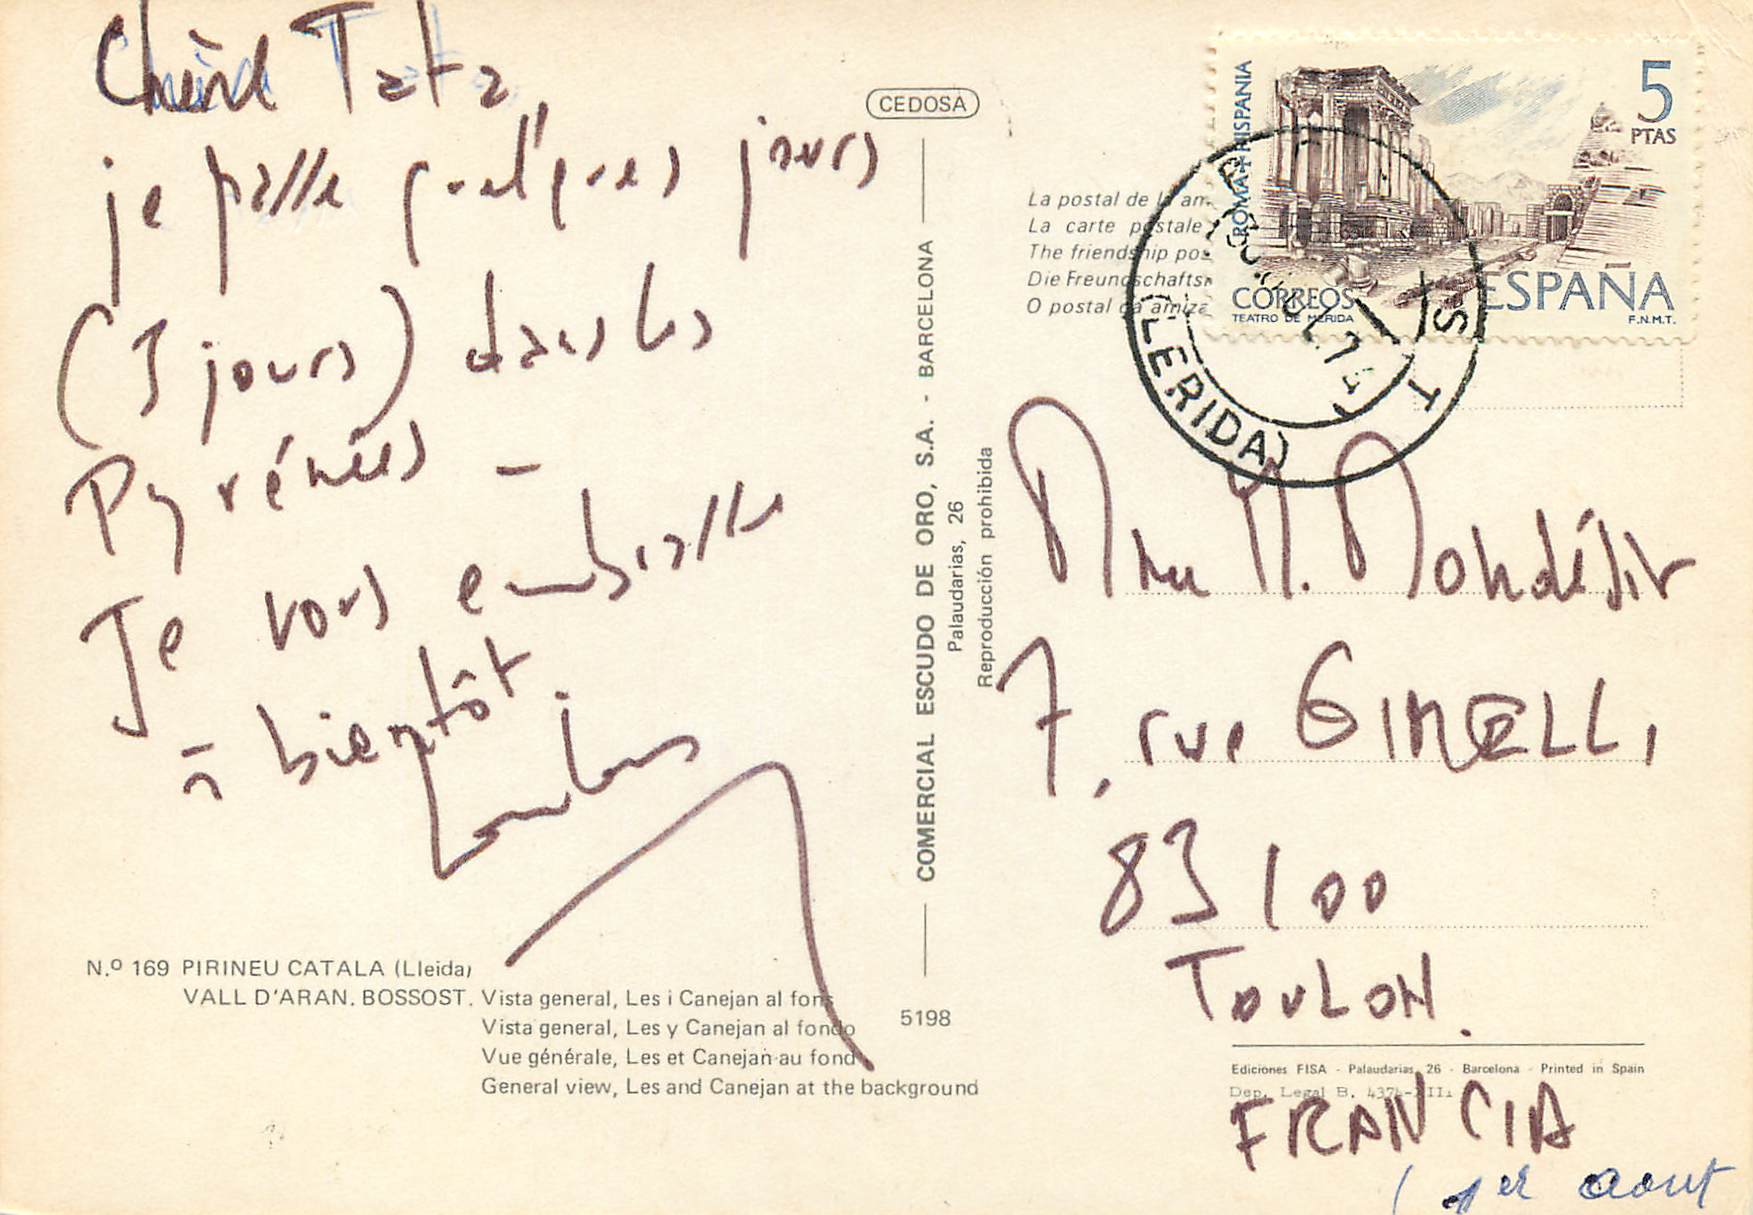 Chère Tata,
je passe quelques jours
(3 jours) dans les
Pyrénées –
Je vous embrasse
à bientôt.
N.º 169 PIRINEU CATALA (Lleida)
VALL D'ARAN. BOSSOST. Vista general, Les i Canejan al fons
Vista general, Les y Canejan al fondo
Vue générale, Les et Canejan au fond
General view, Les and Canejan at the background
5198
CEDOSA
COMERCIAL ESCUDO DE ORO, S.A. - BARCELONA
Palaudarias, 26
Reproducción prohibida
La postal de la am
La carte postale
The friendship pos
Die Freundschafts
O postal da amiza
ROMA + HISPANIA
5
PTAS
ESPAÑA
CORREOS
TEATRO DE MERIDA
F.N.M.T.
(LERIDA)
Mme M. Mondésir
7, rue GINELLI
83100
TOULON.
Ediciones FISA - Palaudarias, 26 - Barcelona - Printed in Spain
Dep. Legal B. 4374-XIII
FRANCIA
(1er aout